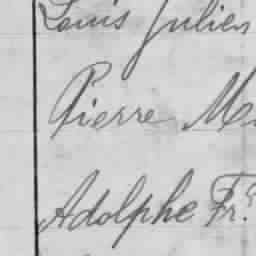 Louis Julien
Pierre M
Adolphe Fr.